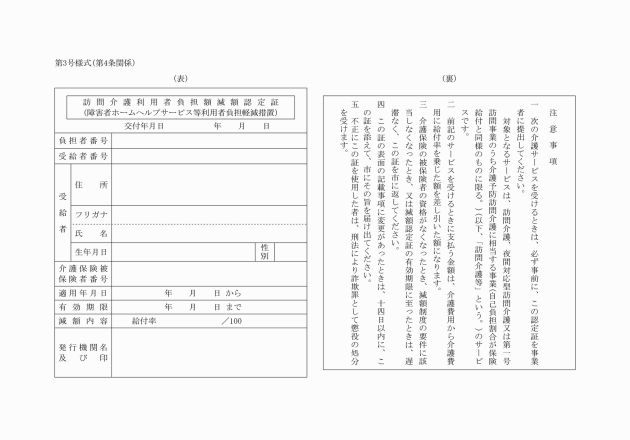 第3号様式(第4条関係)
(表)
訪問介護利用者負担額減額認定証
(障害者ホームヘルプサービス等利用者負担軽減措置)
交付年月日 年 月 日
負担者番号
受給者番号
受給者
住所
フリガナ
氏名
生年月日
性別
介護保険被
保険者番号
適用年月日 年 月 日から
有効期限 年 月 日まで
減額内容 給付率 /100
発行機関名
及び印
(裏)
注意事項
一 次の介護サービスを受けるときは、必ず事前に、この認定証を事業
者に提出してください。
対象となるサービスは、訪問介護、夜間対応型訪問介護又は第一号
訪問事業のうち介護予防訪問介護に相当する事業(自己負担割合が保険
給付と同様のものに限る。)(以下、「訪問介護等」という。)のサービ
スです。
二 前記のサービスを受けるときに支払う金額は、介護費用から介護費
用に給付率を乗じた額を差し引いた額になります。
三 介護保険の被保険者の資格がなくなったとき、減額制度の要件に該
当しなくなったとき、又は減額認定証の有効期限に至ったときは、遅
滞なく、この証を市に返してください。
四 この証の表面の記載事項に変更があったときは、十四日以内に、こ
の証を添えて、市にその旨を届け出てください。
五 不正にこの証を使用した者は、刑法により詐欺罪として懲役の処分
を受けます。